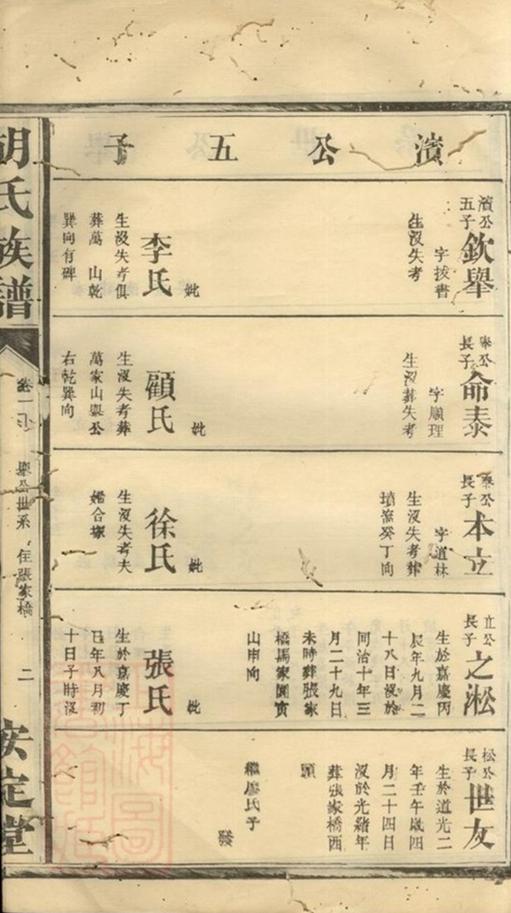 濱公五子
濱公
五子
欽舉
字拔書
生沒失考
妣
李氏
生沒失考俱
葬萬 山乾
巽向有碑
舉公
長子
命泰
字順理
生沒葬失考
妣
顧氏
生沒失考葬
萬家山舉公
右乾巽向
泰公
長子
本立
字道林
生沒失考葬
癸丁向
妣
徐氏
生沒失考夫
婦合塚
立公
長子
之淞
生於嘉慶丙
辰年九月二
十八日沒於
同治十年三
月二十九日
未時葬張家
橋馬家園寅
山申向
妣
張氏
生於嘉慶丁
巳年八月初
十日子時沒
淞公
長子
世友
生於道光二
年壬午歲四
月二十四日
沒於光緒年
葬張家橋西
頭
繼 氏子
發
胡氏族譜
卷一
舉公世系
住張家橋
二
安定堂